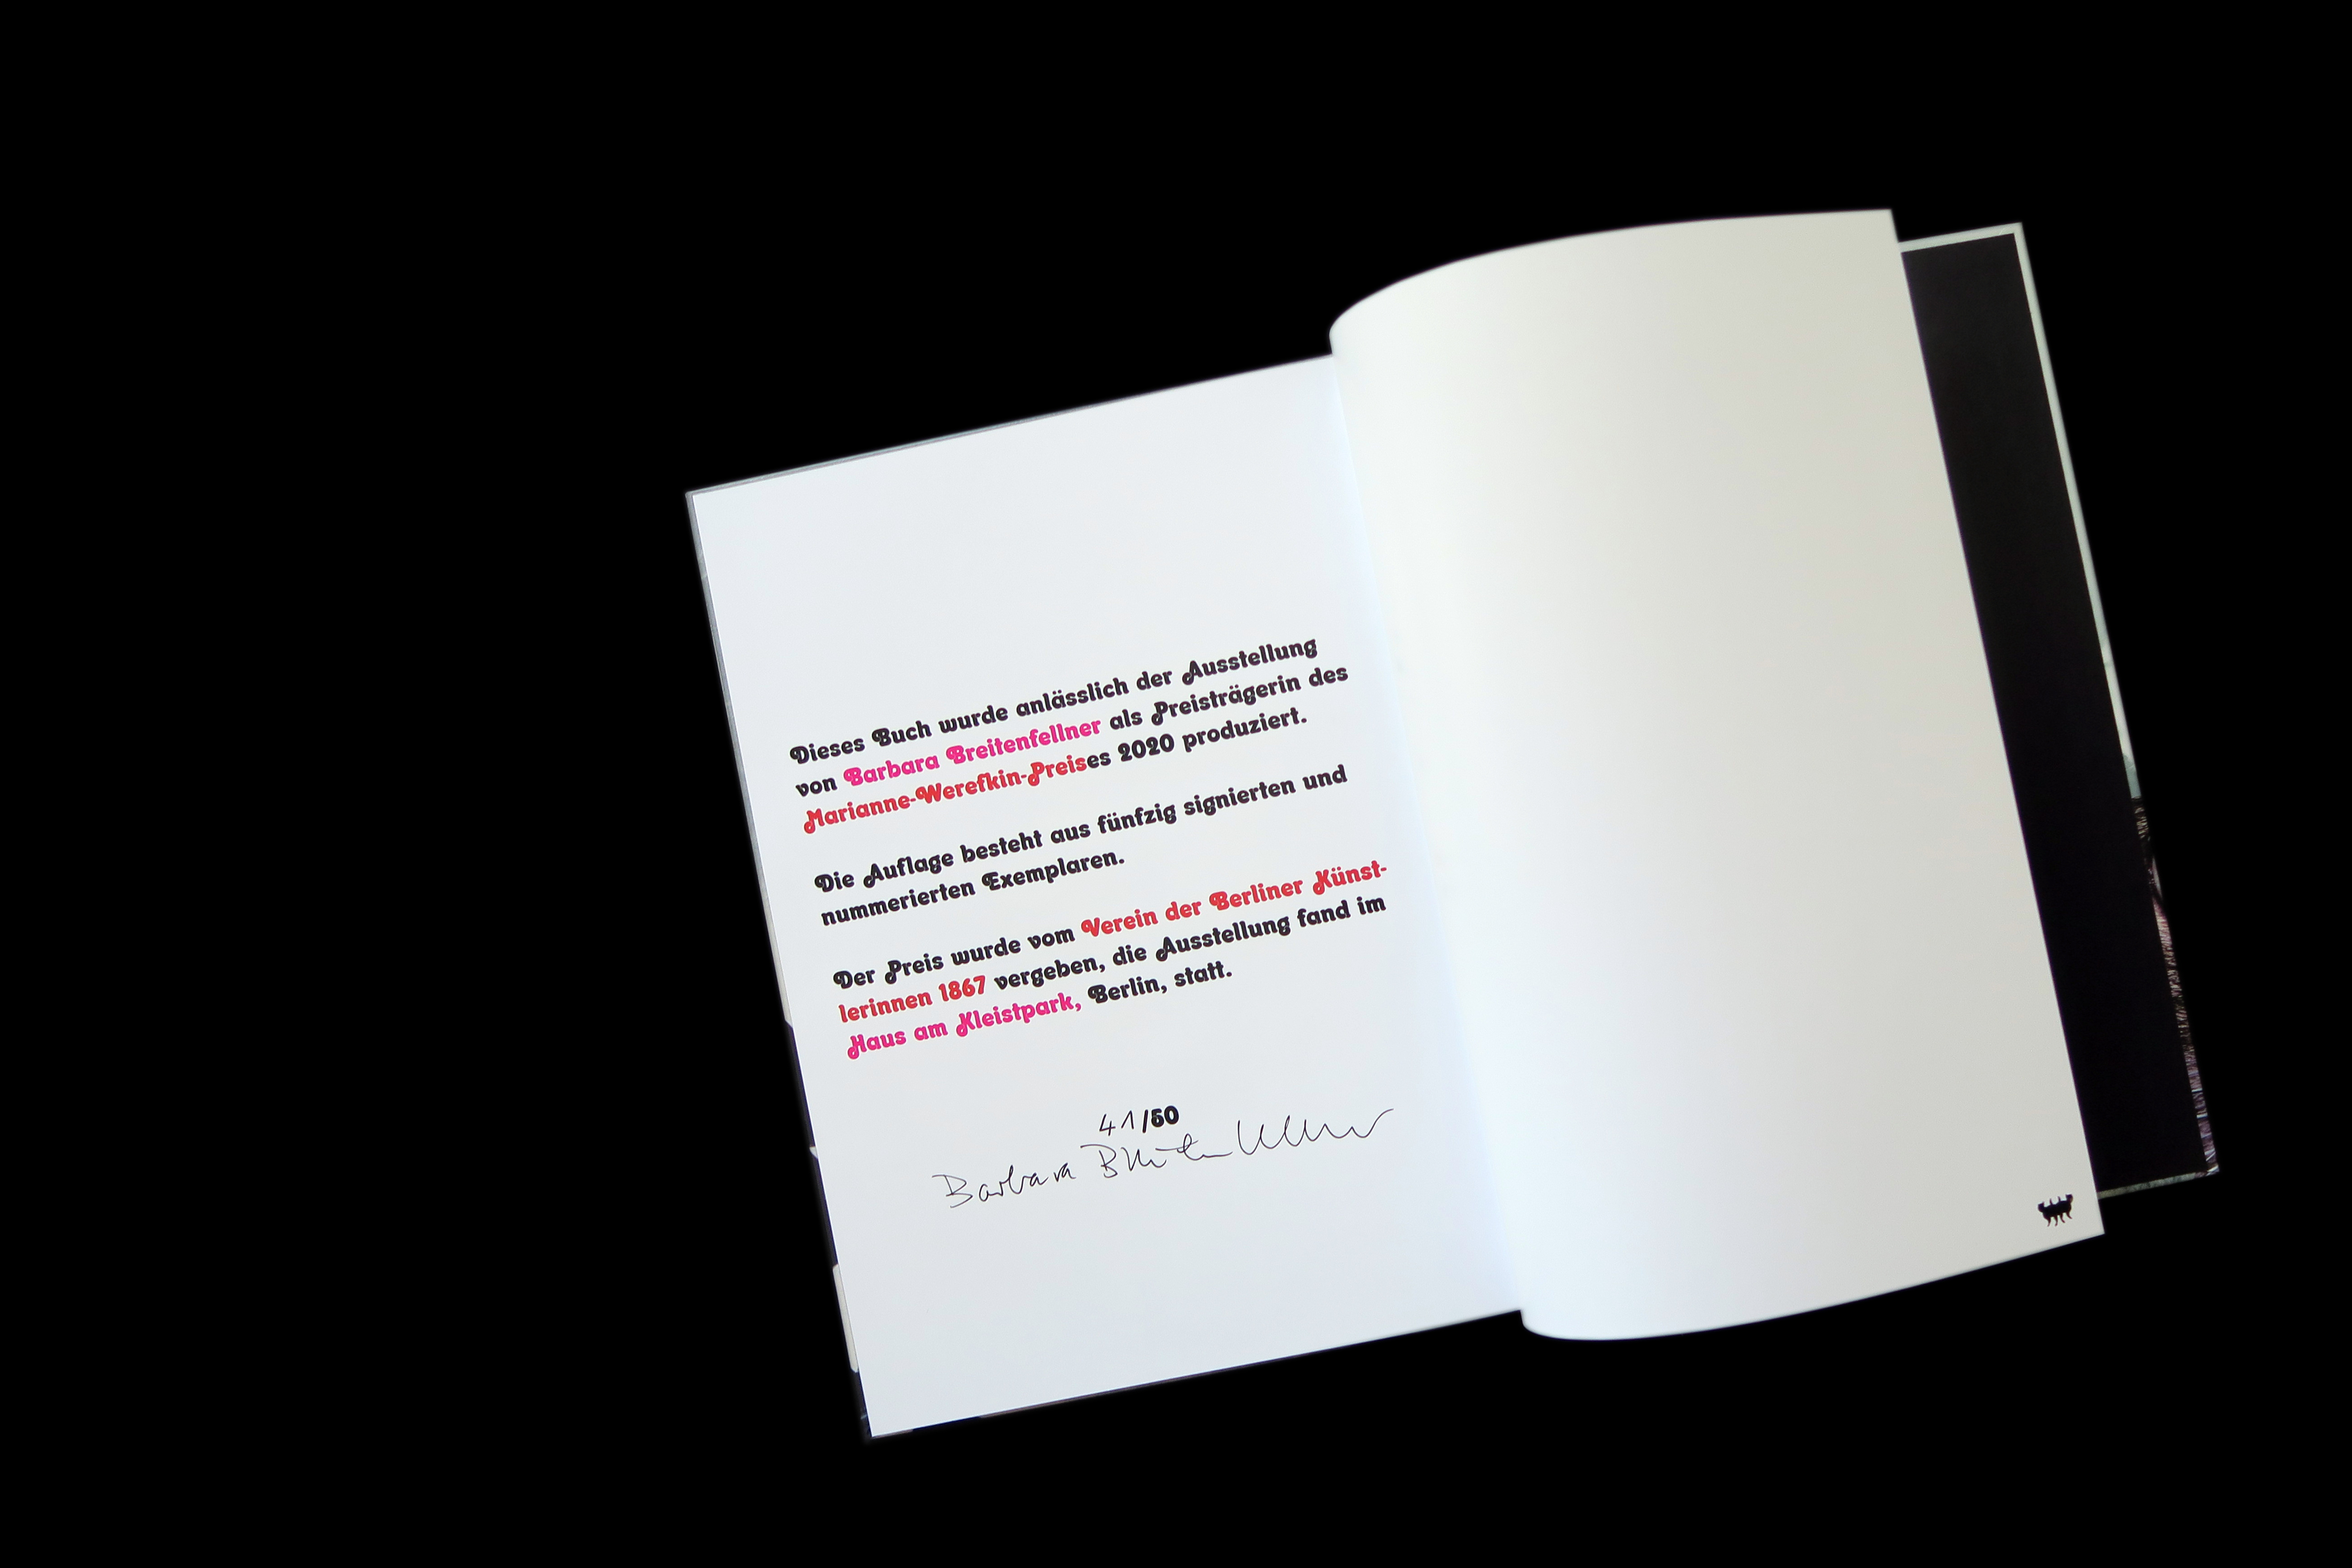 Dieses Buch wurde anlässlich der Ausstellung
von Barbara Breitenfellner als Preisträgerin des
Marianne-Werefkin-Preises 2020 produziert.
Die Auflage besteht aus fünfzig signierten und
nummerierten Exemplaren.
Der Preis wurde vom Verein der Berliner Künst-
lerinnen 1867 vergeben, die Ausstellung fand im
Haus am Kleistpark, Berlin, statt.
41/50
Barbara Breitenfellner